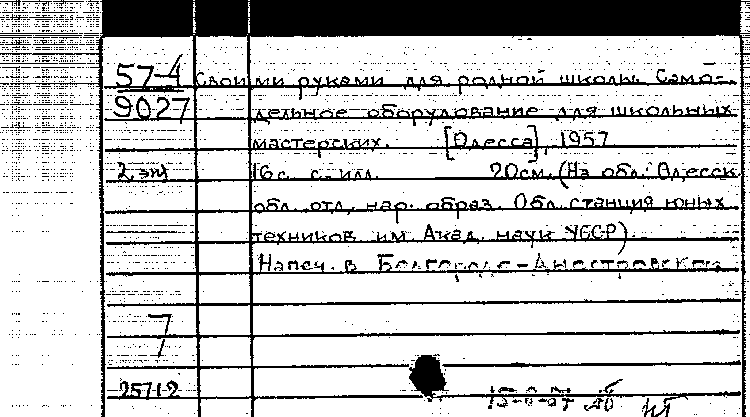 57-4 Своими руками для родной школы. Само-
9027 дельное оборудование для школьных
мастерских. [Одесса], 1957
2 экз 16 с. с илл. 20 см. (На обл.: Одесск.
обл. отд. нар. образ. Обл. станция юных
техников им Акад. наук УССР)
Напеч. в Белгороде-Днестровском
7
25712